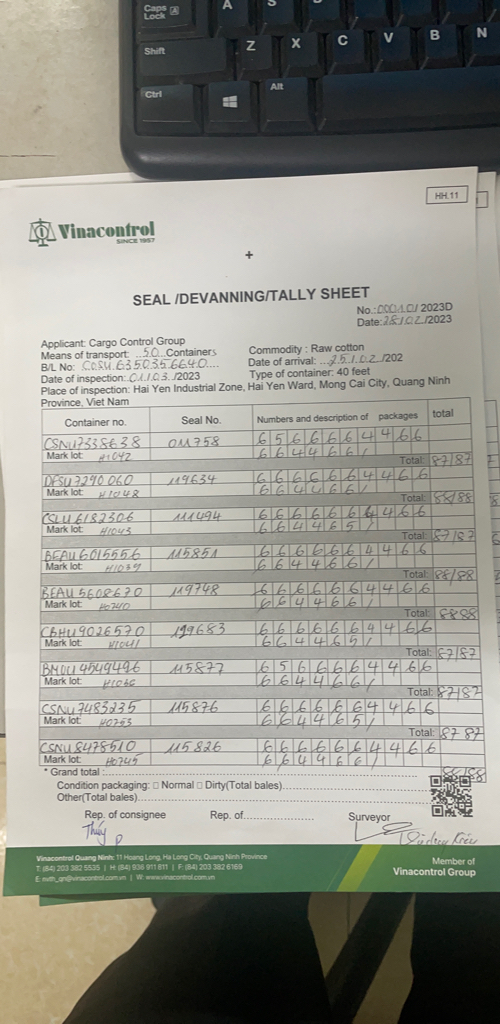 Caps
Lock
A
S
Shift
Z X C V B N
Ctrl
Alt
HH.11
Vinacontrol
SINCE 1957
+
SEAL /DEVANNING/TALLY SHEET
No.: 2023D
Date: 28/02/2023
Applicant: Cargo Control Group
Means of transport: 50 Containers
Commodity : Raw cotton
B/L No: COSU 6350356640
Date of arrival: 25/02/202
Date of inspection: 01/03/2023
Type of container: 40 feet
Place of inspection: Hai Yen Industrial Zone, Hai Yen Ward, Mong Cai City, Quang Ninh
Province, Viet Nam
Container no. Seal No. Numbers and description of packages total
CSNU7338638 011758 6 5 6 6 6 6 4 4 6 6
Mark lot: H1042 6 6 4 4 6 6 /
Total: 87/87
DFSU7290060 119634 6 6 6 6 6 6 4 4 6 6
Mark lot: H1048 6 6 4 4 6 6 /
Total: 88/88
CSLU6182306 111494 6 6 6 6 6 6 4 4 6 6
Mark lot: H1043 6 6 4 4 6 5 /
Total: 87/87
BEAU6015556 115851 6 6 6 6 6 6 4 4 6 6
Mark lot: H1039 6 6 4 4 6 6 /
Total: 88/88
BEAU5608670 119748 6 6 6 6 6 6 4 4 6 6
Mark lot: H0740 6 6 4 4 6 6 /
Total: 88 88
CBHU9026570 119683 6 6 6 6 6 6 4 4 6 6
Mark lot: H1041 6 6 4 4 6 5 /
Total: 87/87
BMOU4549496 115877 6 5 6 6 6 6 4 4 6 6
Mark lot: 6 6 4 4 6 6 /
Total: 87/87
CSNU7483235 115876 6 6 6 6 6 6 4 4 6 6
Mark lot: H0753 6 6 4 4 6 5 /
Total: 87 87
CSNU8478510 115826 6 6 6 6 6 6 4 4 6 6
Mark lot: H0745 6 6 4 4 6 6 /
* Grand total : 88/88
Condition packaging: □ Normal □ Dirty(Total bales)
Other(Total bales)
Rep. of consignee Rep. of Surveyor
Thúy
Vinacontrol Quang Ninh: 11 Hoang Long, Ha Long City, Quang Ninh Province
T: (84) 203 382 5535 | H: (84) 936 911 811 | F: (84) 203 382 6169
E: nvth_qn@vinacontrol.com.vn | W: www.vinacontrol.com.vn
Member of
Vinacontrol Group